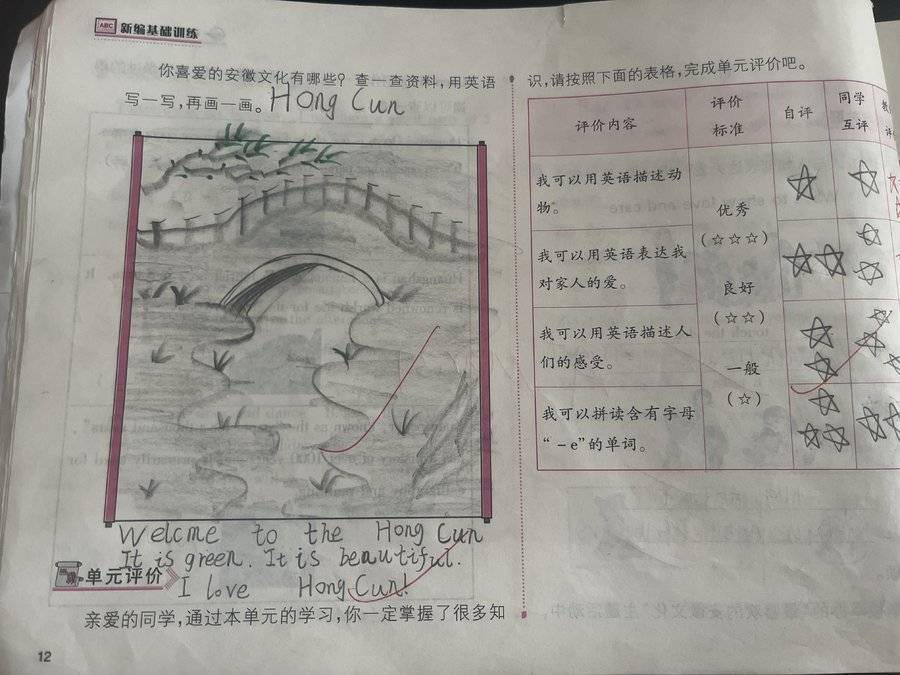 ABC 新编基础训练
你喜爱的安徽文化有哪些?查一查资料,用英语
写一写,再画一画。Hong Cun
Welcme to the Hong Cun
It is green. It is beautiful.
I love Hong Cun!
单元评价
亲爱的同学,通过本单元的学习,你一定掌握了很多知
12
识,请按照下面的表格,完成单元评价吧。
评价内容
评价
标准
自评
同学
互评
我可以用英语描述动
物。
我可以用英语表达我
对家人的爱。
我可以用英语描述人
们的感受。
我可以拼读含有字母
“-e”的单词。
优秀
(☆☆☆)
良好
(☆☆)
一般
(☆)